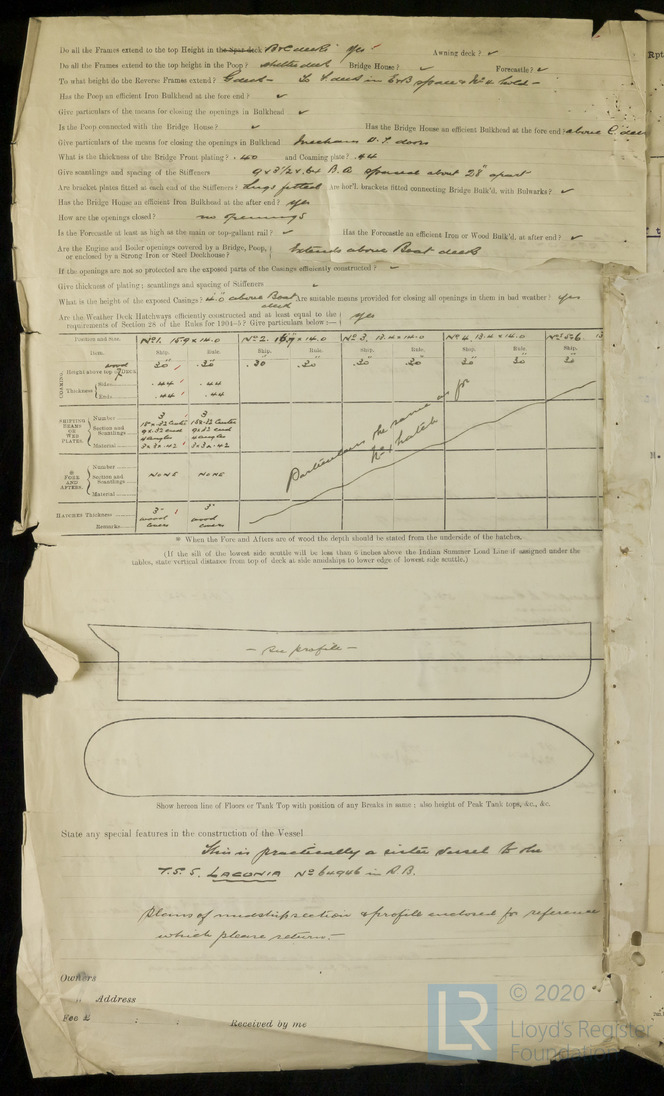 Do all the Frames extend to the top Height in the Spar deck B & C decks yes Awning deck ? ✓
Do all the Frames extend to the top height in the Poop ? shelter deck Bridge House ? ✓ Forecastle ? ✓
To what height do the Reverse Frames extend ?
Has the Poop an efficient Iron Bulkhead at the fore end ? ✓
Give particulars of the means for closing the openings in Bulkhead ✓
Is the Poop connected with the Bridge House ? ✓ Has the Bridge House an efficient Bulkhead at the fore end ? above C deck
Give particulars of the means for closing the openings in Bulkhead W.T. doors
What is the thickness of the Bridge Front plating ? .40 and Coaming plate ? .44
Give scantlings and spacing of the Stiffeners 9 x 3½ x .64 B.A. spaced about 28" apart
Are bracket plates fitted at each end of the Stiffeners ? Lugs fitted Are hor'l. brackets fitted connecting Bridge Bulk'd, with Bulwarks ? ✓
Has the Bridge House an efficient Iron Bulkhead at the after end ? yes
How are the openings closed ? no openings
Is the Forecastle at least as high as the main or top-gallant rail ? ✓ Has the Forecastle an efficient Iron or Wood Bulk'd, at after end ? ✓
Are the Engine and Boiler openings covered by a Bridge, Poop,
or enclosed by a Strong Iron or Steel Deckhouse ? Extends above Boat deck
If the openings are not so protected are the exposed parts of the Casings efficiently constructed ? ✓
Give thickness of plating ; scantlings and spacing of Stiffeners ✓
What is the height of the exposed Casings ? 4.0 above Boat deck Are suitable means provided for closing all openings in them in bad weather ? yes
Are the Weather Deck Hatchways efficiently constructed and at least equal to the
requirements of Section 28 of the Rules for 1904–5 ? Give particulars below :— yes
Position and Size. No 1. 15.9 x 14.0 No 2. 15.9 x 14.0 No 3. 13.4 x 14.0 No 4 13.4 x 14.0 No 5 & 6 13
Item. Ship. Rule. Ship. Rule. Ship. Rule. Ship. Rule Ship.
COAMING Height above top of wood DECK 30" 30" 30 30" 30" 30" 30" 30" 30
Thickness Sides .44 .44
Ends .44 .44
SHIFTING BEAMS OR WEB PLATES. Number 3 3
Section and Scantlings
Material 3 x 3 x .42 3 x 3 x .42
Particulars the same as for
No 1 hatch
* FORE AND AFTERS. Number
Section and Scantlings NONE NONE
Material
HATCHES Thickness 3" 3"
Remarks wood covers wood covers
* When the Fore and Afters are of wood the depth should be stated from the underside of the hatches.
(If the sill of the lowest side scuttle will be less than 6 inches above the Indian Summer Load Line if assigned under the
tables, state vertical distance from top of deck at side amidships to lower edge of lowest side scuttle.)
— See profile —
Show hereon line of Floors or Tank Top with position of any Breaks in same ; also height of Peak Tank tops, &c., &c.
State any special features in the construction of the Vessel
This is practically a sister vessel to the
T.S.S. LACONIA No 64946 in R.B.
Plans of midship section & profile enclosed for reference
which please return.—
Owners
,, Address
Fee £ : : Received by me
LR © 2020
Lloyd's Register
Foundation
Rpt